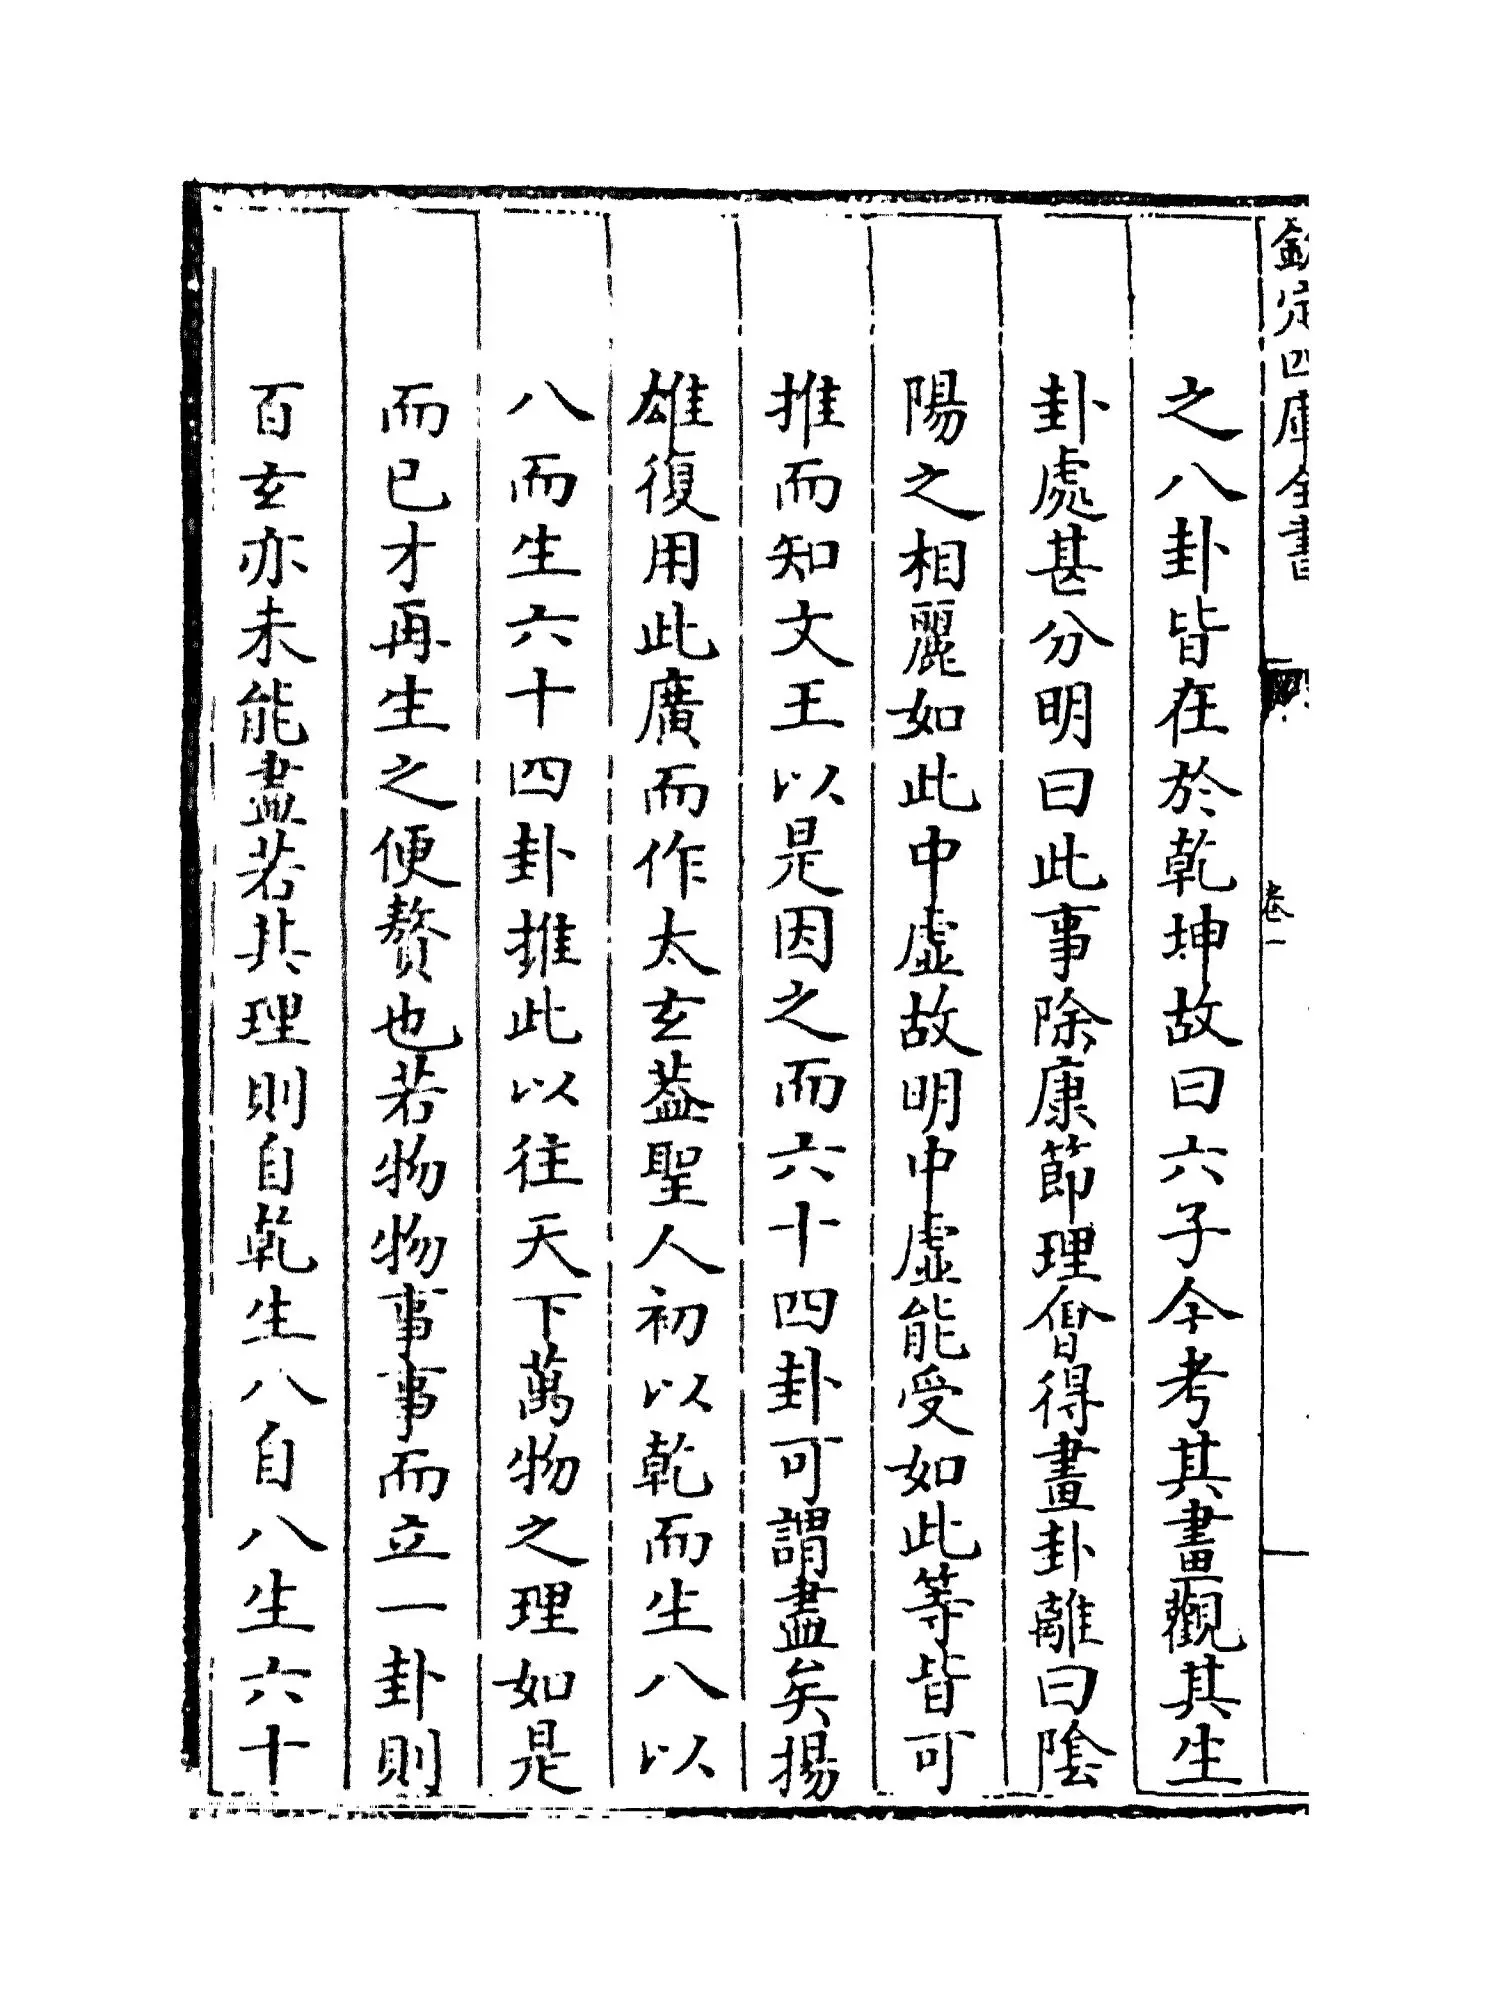 欽定四庫全書
卷一
之八卦皆在於乾坤故曰六子今考其畫觀其生
卦處甚分明曰此事除康節理㑹得畫卦離曰陰
陽之相麗如此中虛故明中虛能受如此等皆可
推而知文王以是因之而六十四卦可謂盡矣揚
雄復用此廣而作太玄葢聖人初以乾而生八以
八而生六十四卦推此以往天下萬物之理如是
而已才再生之便贅也若物物事事而立一卦則
百玄亦未能盡若其理則自乾生八自八生六十